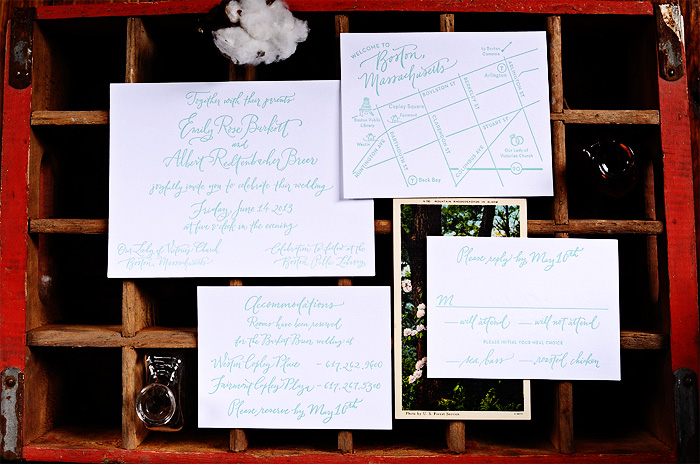 Together with their parents
Emily Rose Barkett
and
Albert Redtenbacher Breer
joyfully invite you to celebrate their wedding
Friday, June 14, 2013
at five o'clock in the evening
Our Lady of Victories Church
Boston, Massachusetts
Celebration to follow at the
Boston Public Library
WELCOME TO
Boston,
Massachusetts
to Boston
Common
T
Arlington
ARLINGTON ST
BOYLSTON ST
BERKELEY ST
Copley Square
Fairmont
Boston Public
Library
Westin
HUNTINGTON AVE
DARTMOUTH ST
CLARENDON ST
COLUMBUS AVE
STUART ST
T Back Bay
Our Lady of
Victories Church
Accommodations
Rooms have been reserved
for the Barkett Breer wedding at
Westin Copley Place - 617.262.9600
Fairmont Copley Plaza - 617.267.5310
Please reserve by May 10th
Photo by U. S. Forest Service
Please reply by May 10th
M
will attend will not attend
PLEASE INITIAL YOUR MEAL CHOICE
sea bass roasted chicken